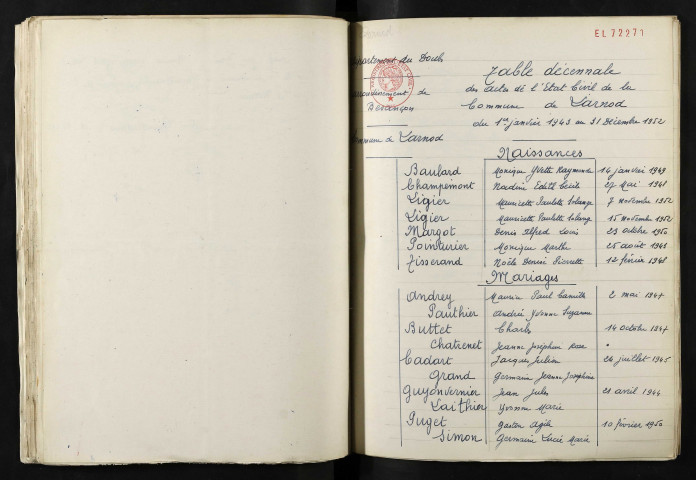 EL 72271
Département du Doubs
Arrondissement de
Besançon
Commune de Larnod
Table décennale
des actes de l'Etat Civil de la
Commune de Larnod
du 1er janvier 1943 au 31 Décembre 1952
Naissances
Baulard Monique Yvette Raymonde 14 janvier 1949
Champémont Nadine Edith Cécile 27 Mai 1948
Ligier Mauricette Paulette Solange 7 novembre 1952
Ligier Mauricette Paulette Solange 15 novembre 1952
Margot Denis Alfred Louis 23 octobre 1950
Pointurier Monique Marthe 25 août 1948
Tisserand Noële Denise Pierrette 12 février 1948
Mariages
Andrey Maurice Paul Camille 2 mai 1947
Pauthier Andrée Yvonne Suzanne
Buttet Charles 14 octobre 1947
Chatrenet Jeanne Joséphine Rose
Cadart Jacques Julien 26 juillet 1945
Grand Germaine Jeanne Joséphine
Guyonvernier Jean Jules 21 avril 1944
Laithier Yvonne Marie
Puget Gaston 10 février 1950
Simon Germaine Lucie Marie